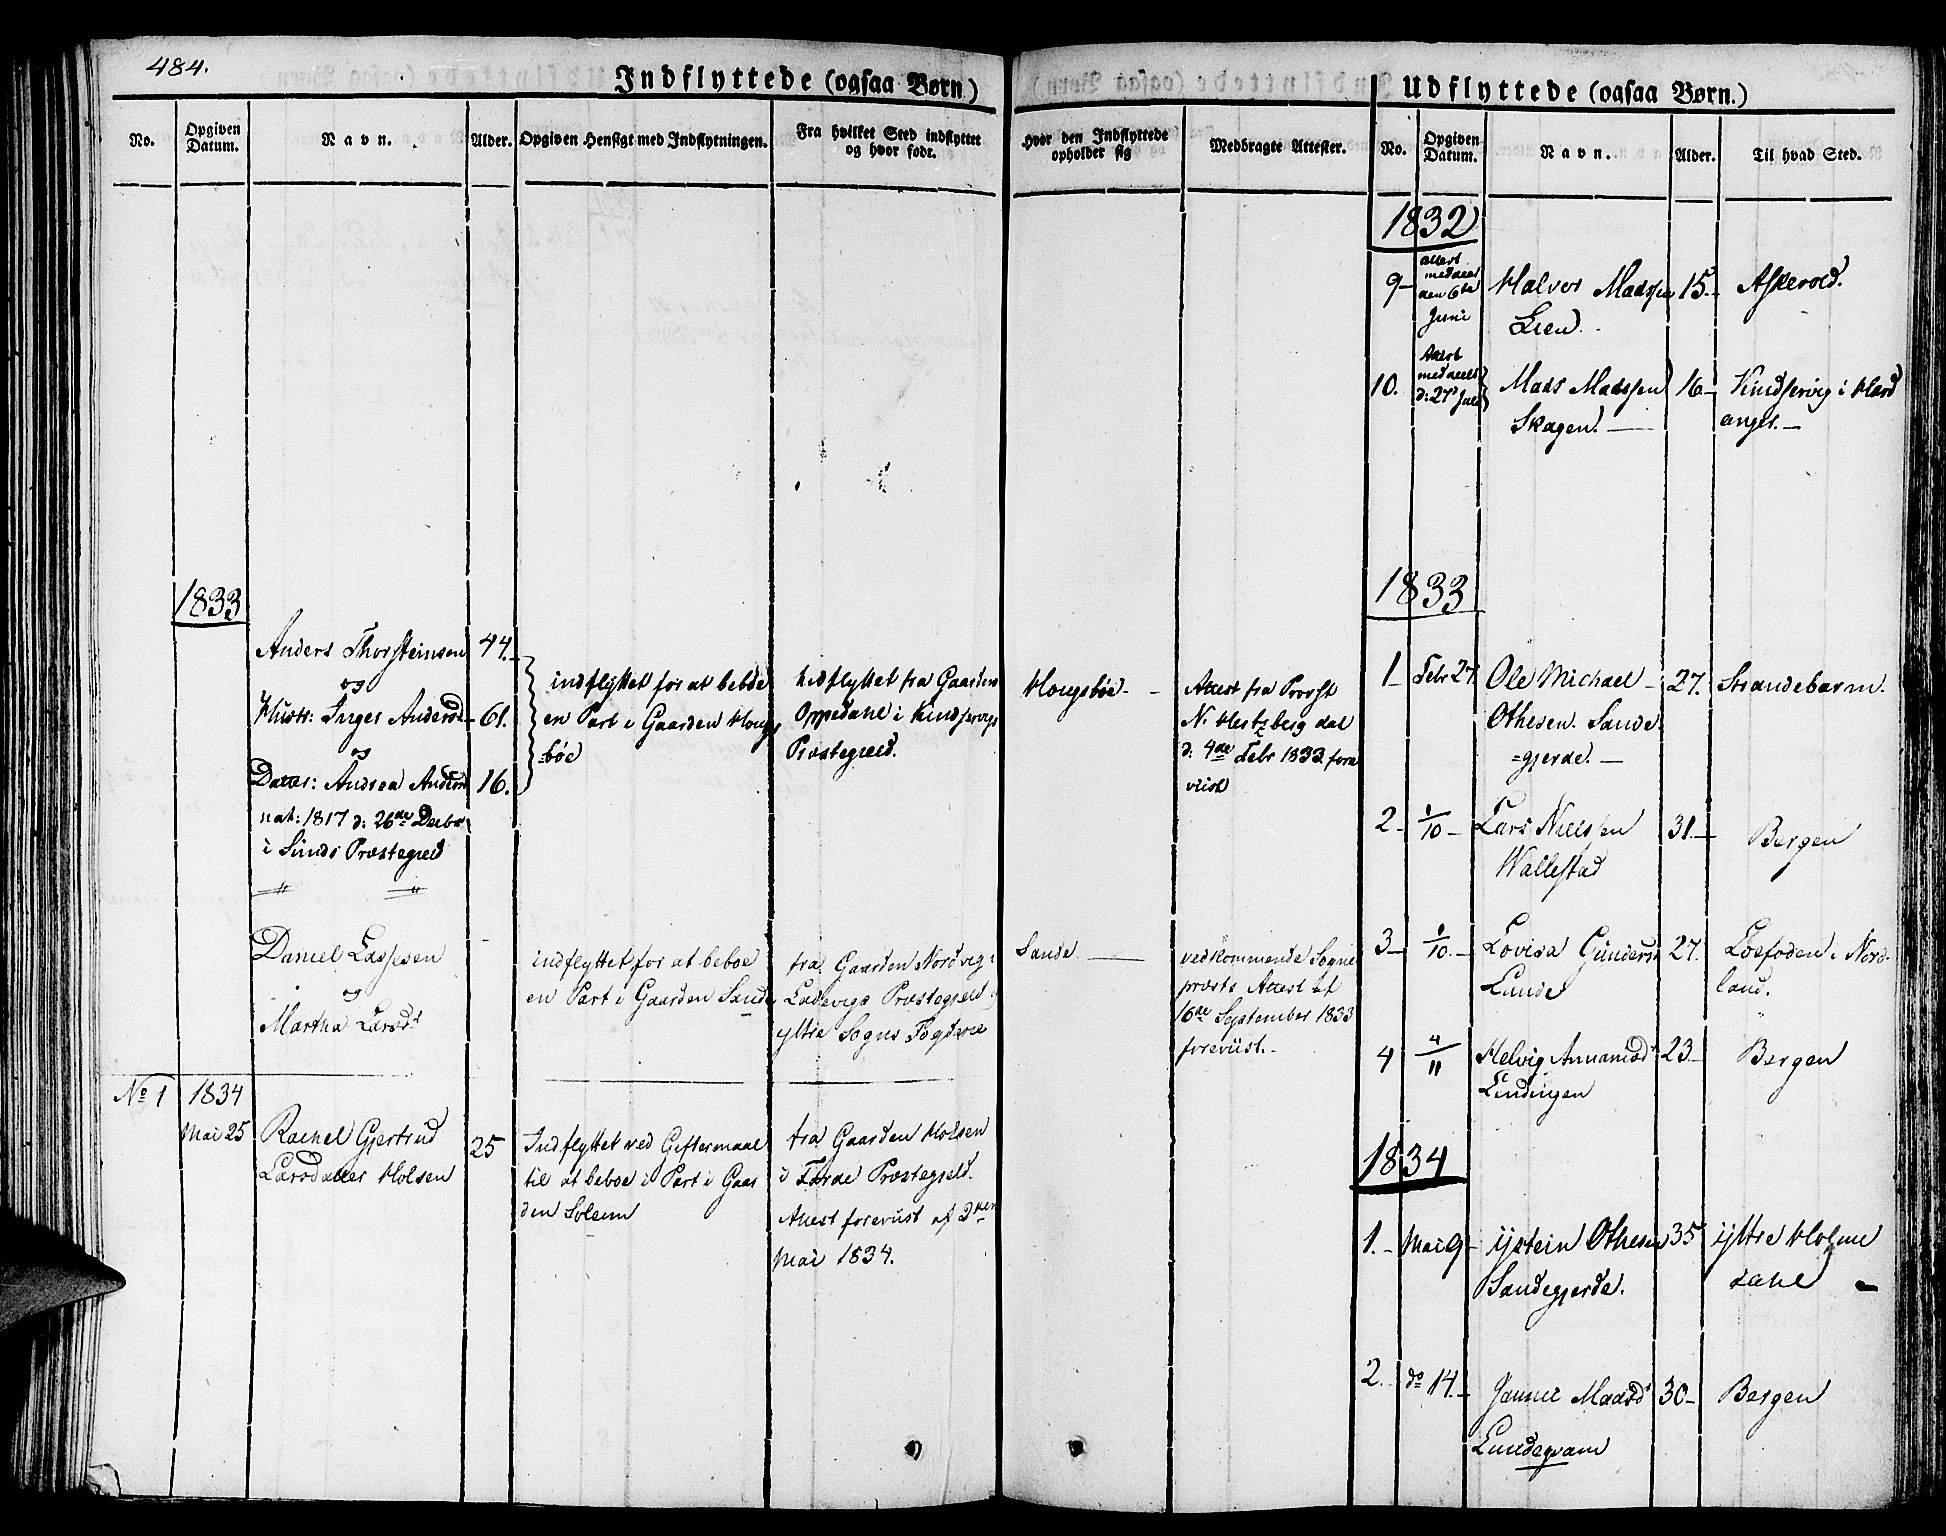 484.
Indflyttede (ogsaa Børn.)
No.
Opgiven Datum.
Navn.
Alder.
Opgiven Hensigt med Indflytningen.
Fra hvilket Sted indflyttet og hvor født.
Hvor den Indflyttede opholder sig
Medbragte Attester.
1833
Anders Thorsteinsen 44.
og
Hustr: Inger Andersd 61.
og
Datter: Andrea Andersd 16.
nat: 1817 d: 26de Decbr
i Sunds Præstegield
indflyttet for at beboe
en Part i Gaarden Houg
bøe
hidflyttet fra Gaarden
Oppedahl i Kindservigs
Præstegield.
Hougsbøe
Attest fra Provst
N. Hertzberg dat
d: 4de Febr 1833 fore
viist
Daniel Lassesen
og
Martha Larsdt
indflyttet for at beboe
en Part i Gaarden Sande
fra Gaarden Nordvig i
Ladevigs Præstegjeld
yttre Sogns Fogderie
Sande
vedkommende Sogne
præsts Attest af
16de September 1833
foreviist.
No 1 1834
Mai 25
Rachel Gjertrud
Larsdatter Holsen
25
Indflyttet ved Giftermaal
til at beboe i Part i Gaar
den Solem
fra Gaarden Holsen
i Førde Præstegjeld.
Attest foreviist af 2den
Mai 1834.
Udflyttede (ogsaa Børn.)
No.
Opgiven Datum.
Navn.
Alder.
Til hvad Sted.
1832
9 Attest meddeelt den 6te Juni
Halvor Madssen 15. Askevold.
Lien.
10. Attest meddeelt d: 27d Juli
Mads Madssen 16 Kindservig i Hard
Skagen. anger.
1833
1 Febr 27 Ole Michael 27. Strandebarm.
Othesen Sande
gjerde.
2 1/10 Lars Nielssen 31. Bergen
Wallestad
3 1/10 Lovisa Gundersd 27. Lofoden i Nord-
Lunde land.
4 4/11 Helvig Annaniasd 23 Bergen
Lindingen
1834
1. Mai 9 ijstein Othesen 35 ijttre Holme
Sandegjerde. dahl
2. do 14. Janne Madsd 30 Bergen
Lundeqvam